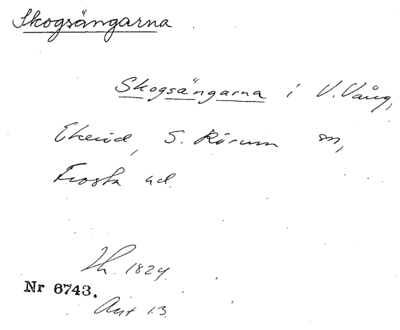 Skogsängarna
Skogsängarna i V. Vång,
Ekeröd, S. Rörum sn,
Frosta hd.
Th. 1824.
Nr 6743.
Akt 13.